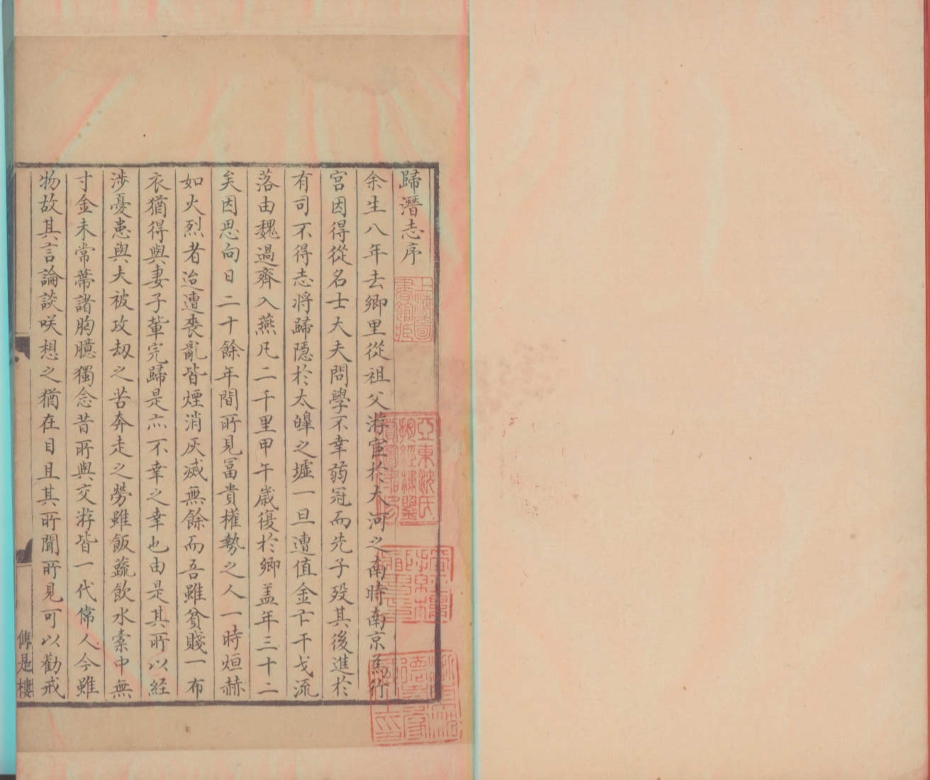 歸潛志序
余生八年去鄉里從祖父游宦於大河之南時南京為行
宮因得從名士大夫問學不幸弱冠而先子歿其後進於
有司不得志將歸隱於太皡之墟一旦遭值金亡干戈流
落由魏過齊入燕凡二千里甲午歲復於鄉盖年三十二
矣因思向日二十餘年間所見富貴權勢之人一時烜赫
如火烈者迨遭喪亂皆煙消灰滅無餘而吾雖貧賤一布
衣猶得與妻子輩完歸是亦不幸之幸也由是其所以經
涉憂患與夫被攻刼之苦奔走之勞雖飯蔬飲水素中無
寸金未常蔕諸胸臆獨念昔所與交游皆一代偉人今雖
物故其言論談咲想之猶在目且其所聞所見可以勸戒
傳是樓